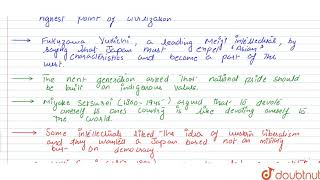 highest point of civilization
→ Fukuzawa Yukichi, a leading Meiji intellectual, by
saying that Japan must expel 'Asian'
characteristics and become a part of the
west.
→ The next generation asked that national pride should
be built on indigenous values.
→ Miyake Setsurei (1860-1945) argued that to devote
oneself to one's country is like devoting oneself to
the world.
→ Some intellectuals liked the idea of western liberalism
and they wanted a Japan based not on military
but on democracy
doubtnut